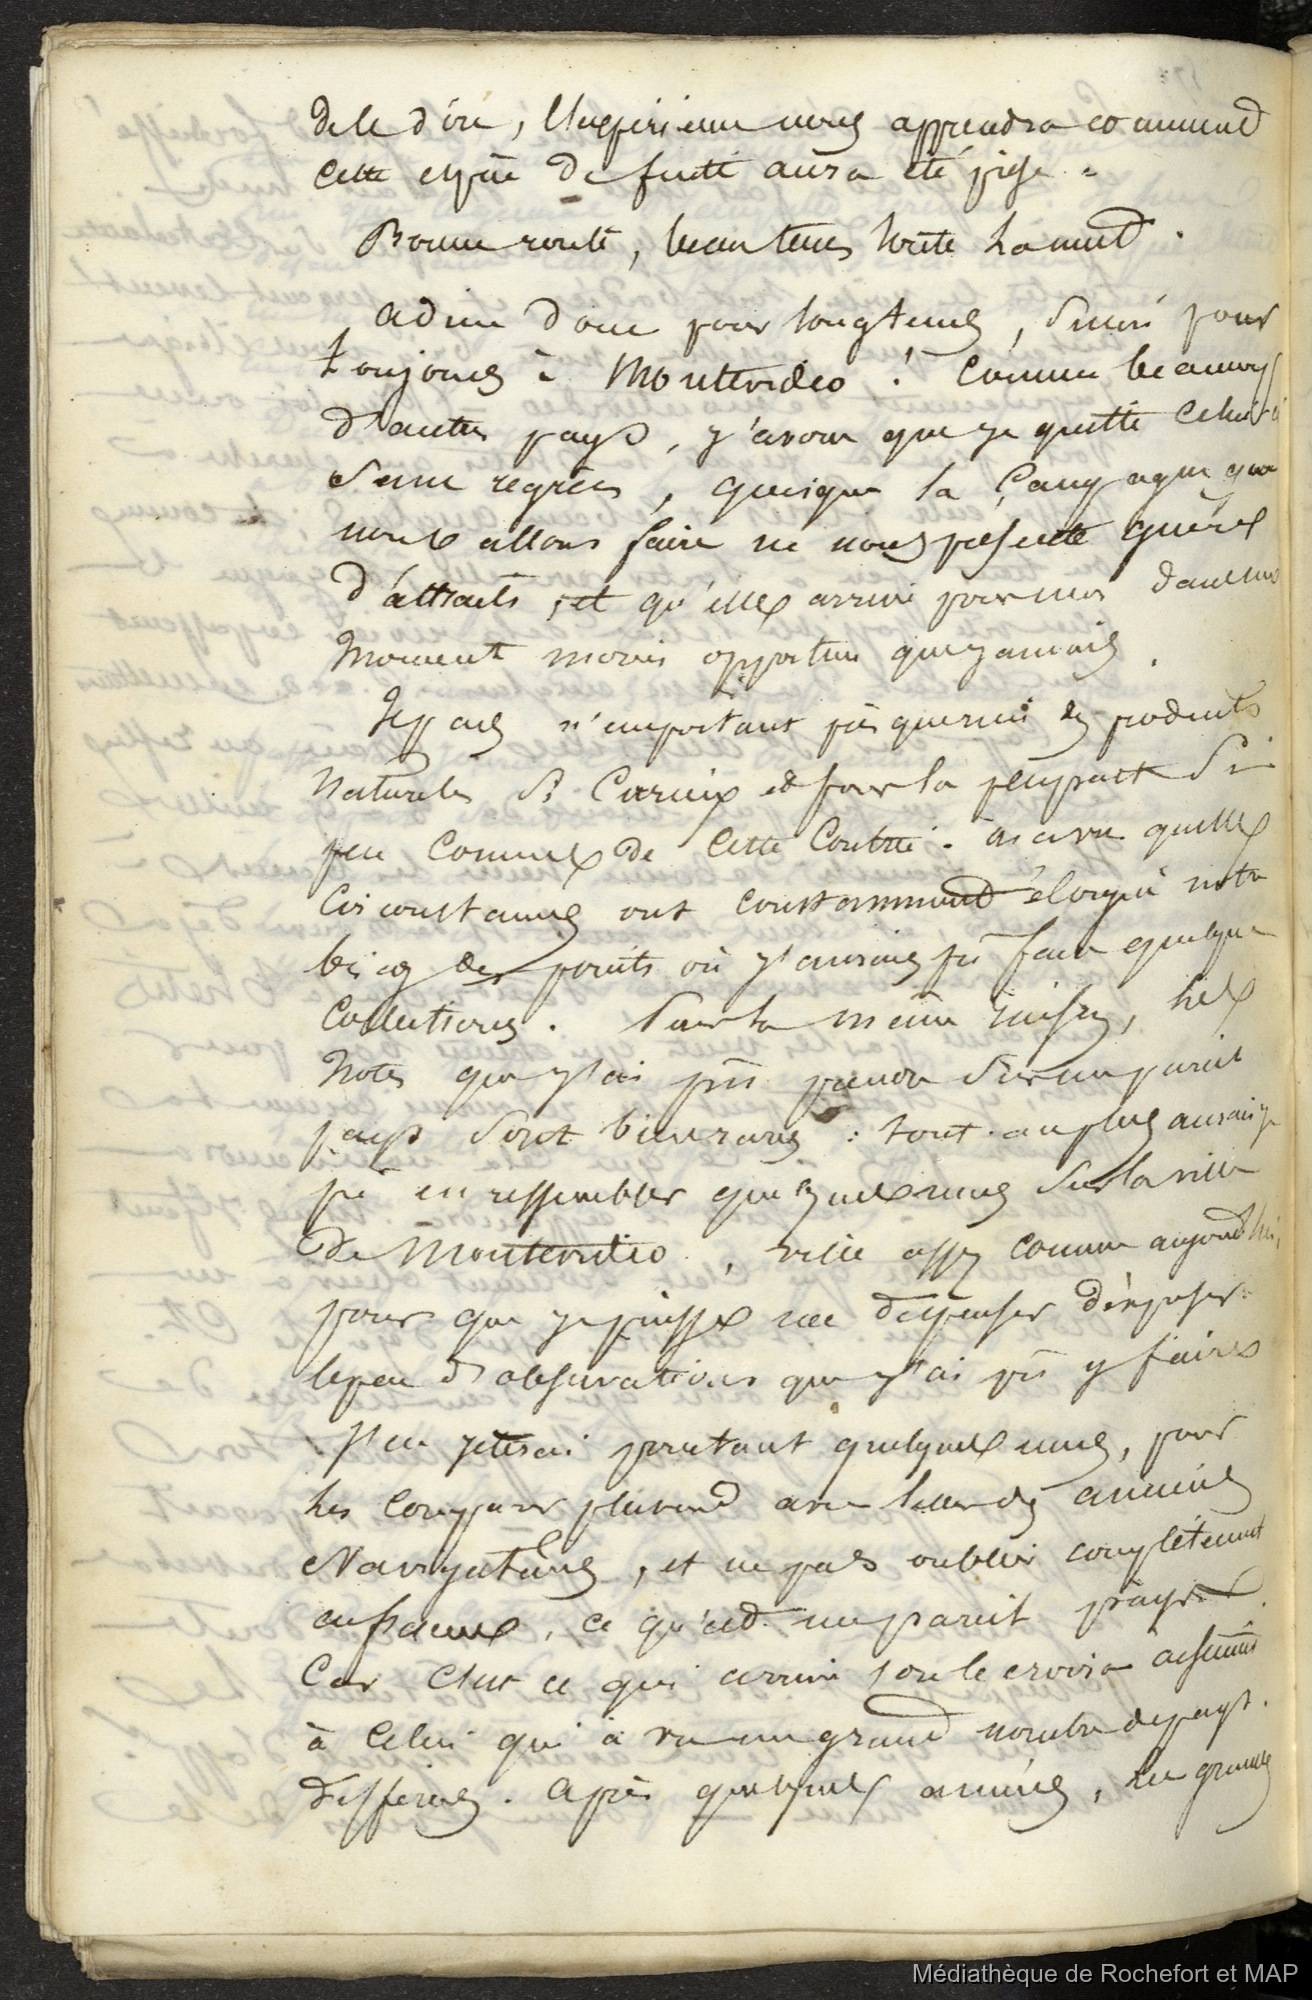 de le dire, l'expérience nous apprendra comment
cette espèce de fuite aura été jugée.
Bonne route, beau tems toute la nuit.
Adieu donc pour longtems, sinon pour
toujours à Montevideo ! Comme beaucoup
d'autres pays, j'avoue que je quitte celui ci
sans regrets, quoique la campagne que
nous allons faire ne nous présente guères
d'attraits, et qu'elle arrive pour moi dans un
moment moins opportun que jamais.
Je pars n'emportant presque rien des produits
naturels si curieux et pour la plupart si
peu connus de cette contrée.
circonstances ont constamment éloigné notre
brick des points où j'aurais pû faire quelques
collections. Par la même raison, les
notes que j'ai pû prendre sur un pareil
pays sont bien rares : tout au plus aurais je
pû en rassembler quelques unes sur la ville
de Montevideo, ville assez connue aujourd'hui,
pour que je puisse me dispenser d'exposer
le peu d'observations que j'ai pû y faire
J'en jetterai pourtant quelques unes, pour
les comparer plutard avec celles des anciens
Navigateurs, et ne pas oublier complétement
ce qu'est un pareil pays.
Car c'est ce qui arrive, on le croira aisément
à celui qui a vu un grand nombre de pays
différens. Après quelques années, les grandes
Médiathèque de Rochefort et MAP